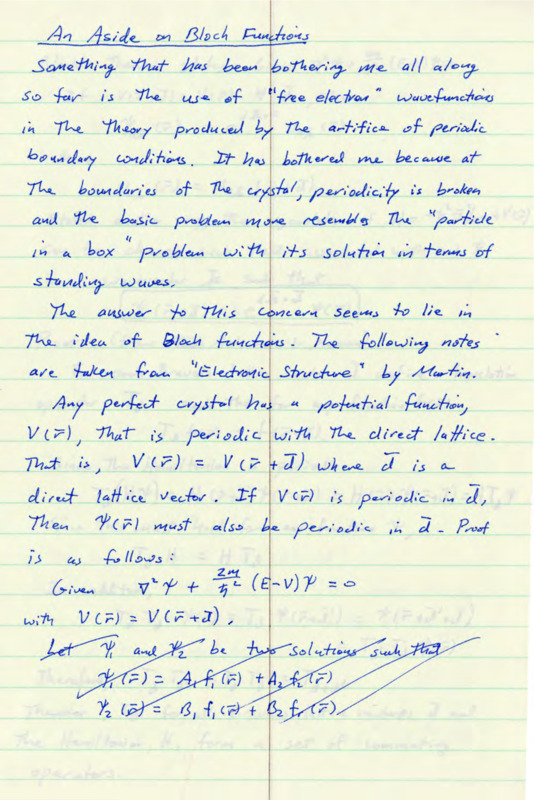 An Aside on Bloch Functions
Something that has been bothering me all along
so far is the use of "free electron" wavefunctions
in the theory produced by the artifice of periodic
boundary conditions. It has bothered me because at
the boundaries of the crystal, periodicity is broken
and the basic problem more resembles the "particle
in a box" problem with its solution in terms of
standing waves.
The answer to this concern seems to lie in
the idea of Bloch functions. The following notes
are taken from "Electronic Structure" by Martin.
Any perfect crystal has a potential function,
V(r̄), that is periodic with the direct lattice.
That is, V(r̄) = V(r̄ + d̄) where d̄ is a
direct lattice vector. If V(r̄) is periodic in d̄,
then Ψ(r̄) must also be periodic in d̄. Proof
is as follows:
Given ∇²Ψ + 2m/ħ² (E-V)Ψ = 0
with V(r̄) = V(r̄+d̄).
Let Ψ₁ and Ψ₂ be two solutions such that
Ψ₁(r̄) = A₁ f₁(r̄) + A₂ f₂(r̄)
Ψ₂(r̄) = B₁ f₁(r̄) + B₂ f₂(r̄)